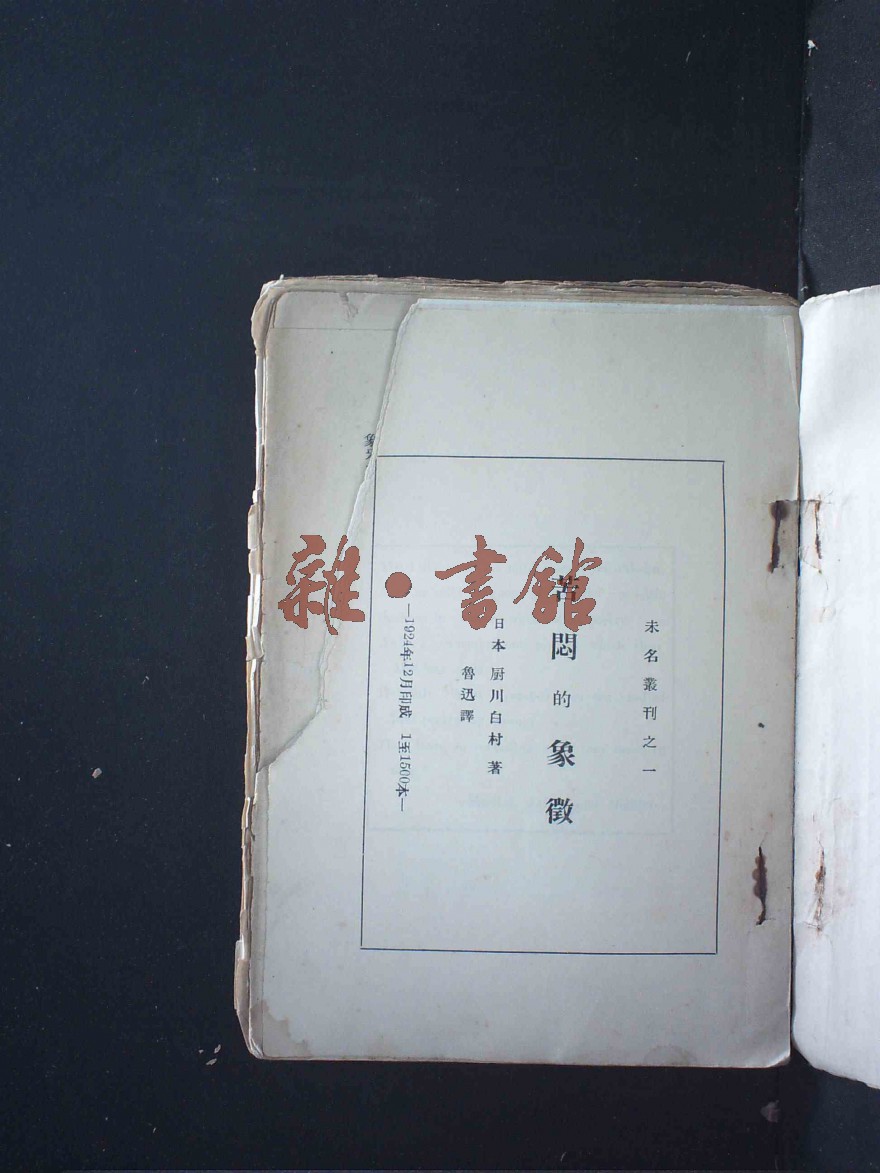 未名叢刊之一
苦悶的象徵
日本厨川白村著
魯迅譯
—1924年12月印成 1至1500本—
象
雜·書館